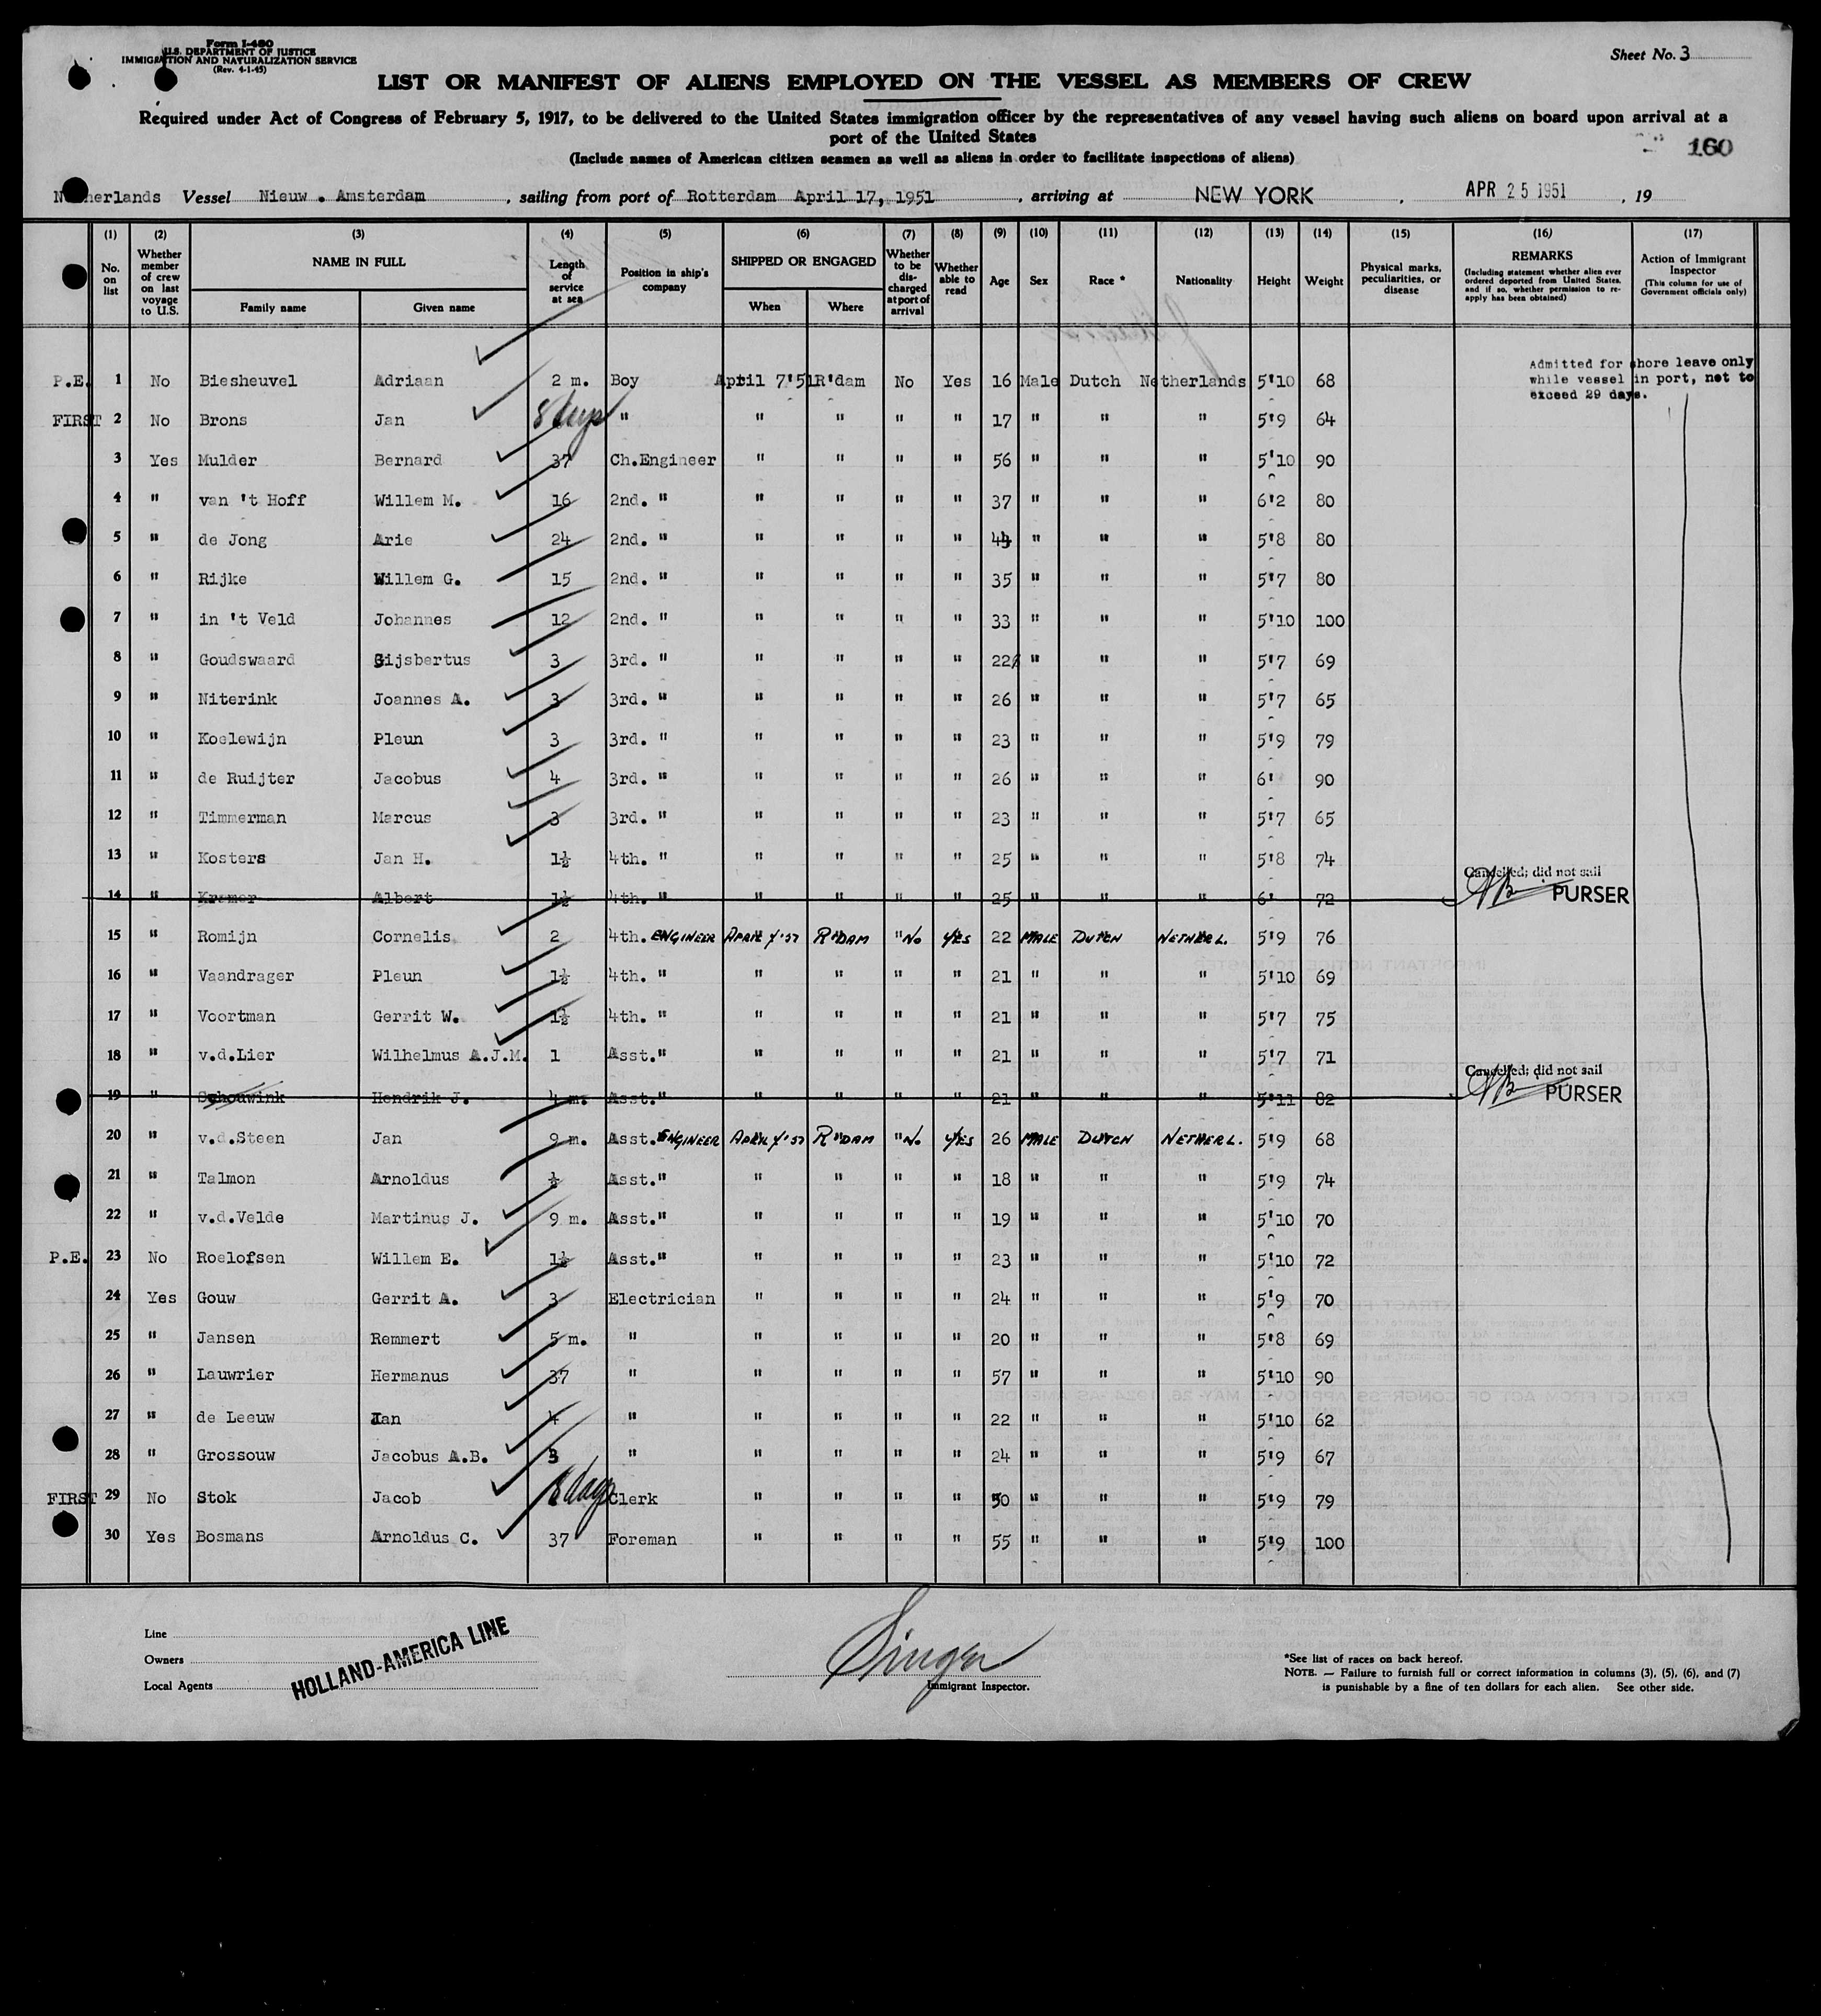 Form I-480
U.S. DEPARTMENT OF JUSTICE
IMMIGRATION AND NATURALIZATION SERVICE
(Rev. 4-1-45)
Sheet No. 3
LIST OR MANIFEST OF ALIENS EMPLOYED ON THE VESSEL AS MEMBERS OF CREW
Required under Act of Congress of February 5, 1917, to be delivered to the United States immigration officer by the representatives of any vessel having such aliens on board upon arrival at a
port of the United States
(Include names of American citizen seamen as well as aliens in order to facilitate inspections of aliens)
160
Netherlands Vessel Nieuw . Amsterdam , sailing from port of Rotterdam April 17, 1951 , arriving at NEW YORK , APR 25 1951 , 19
(1) (2) (3) (4) (5) (6) (7) (8) (9) (10) (11) (12) (13) (14) (15) (16) (17)
No. on list Whether member of crew on last voyage to U.S. NAME IN FULL Family name Given name Length of service at sea Position in ship's company SHIPPED OR ENGAGED When Where Whether to be discharged at port of arrival Whether able to read Age Sex Race * Nationality Height Weight Physical marks, peculiarities, or disease REMARKS (Including statement whether alien ever ordered deported from United States, and if so, whether permission to reapply has been obtained) Action of Immigrant Inspector (This column for use of Government officials only)
Admitted for shore leave only
while vessel in port, not to
exceed 29 days.
P.E. 1 No Biesheuvel Adriaan 2 m. Boy April 7'51 R'dam No Yes 16 Male Dutch Netherlands 5'10 68
FIRST 2 No Brons Jan 8 days " " " " " 17 " " " 5'9 64
3 Yes Mulder Bernard 37 Ch.Engineer " " " " 56 " " " 5'10 90
4 " van 't Hoff Willem M. 16 2nd. " " " " " 37 " " " 6'2 80
5 " de Jong Arie 24 2nd. " " " " " 44 " " " 5'8 80
6 " Rijke Willem G. 15 2nd. " " " " " 35 " " " 5'7 80
7 " in 't Veld Johannes 12 2nd. " " " " " 33 " " " 5'10 100
8 " Goudswaard Gijsbertus 3 3rd. " " " " " 22 " " " 5'7 69
9 " Niterink Joannes A. 3 3rd. " " " " " 26 " " " 5'7 65
10 " Koelewijn Pleun 3 3rd. " " " " " 23 " " " 5'9 79
11 " de Ruijter Jacobus 4 3rd. " " " " " 26 " " " 6' 90
12 " Timmerman Marcus 3 3rd. " " " " " 23 " " " 5'7 65
13 " Kosters Jan H. 1½ 4th. " " " " " 25 " " " 5'8 74
14 " Kramer Albert 1½ 4th. " " " " " 25 " " " 6' 72 Cancelled; did not sail PURSER
15 " Romijn Cornelis 2 4th. ENGINEER APRIL 7'51 R'DAM " No YES 22 MALE DUTCH NETHERL. 5'9 76
16 " Vaandrager Pleun 1½ 4th. " " " " " 21 " " " 5'10 69
17 " Voortman Gerrit W. 1½ 4th. " " " " " 21 " " " 5'7 75
18 " v.d.Lier Wilhelmus A.J.M. 1 Asst." " " " " 21 " " " 5'7 71
19 " Schouwink Hendrik J. 4 m. Asst." " " " " 21 " " " 5'11 82 Cancelled; did not sail PURSER
20 " v.d.Steen Jan 9 m. Asst. ENGINEER APRIL 7'51 R'DAM " No YES 26 MALE DUTCH NETHERL. 5'9 68
21 " Talmon Arnoldus ½ Asst." " " " " 18 " " " 5'9 74
22 " v.d.Velde Martinus J. 9 m. Asst." " " " " 19 " " " 5'10 70
P.E. 23 No Roelofsen Willem E. 1½ Asst." " " " " 23 " " " 5'10 72
24 Yes Gouw Gerrit A. 3 Electrician " " " " 24 " " " 5'9 70
25 " Jansen Remmert 5 m. " " " " " 20 " " " 5'8 69
26 " Lauwrier Hermanus 37 " " " " " 57 " " " 5'10 90
27 " de Leeuw Jan 4 " " " " " 22 " " " 5'10 62
28 " Grossouw Jacobus A.B. 3 " " " " " 24 " " " 5'9 67
FIRST 29 No Stok Jacob 8 days Clerk " " " " 50 " " " 5'9 79
30 Yes Bosmans Arnoldus C. 37 Foreman " " " " 55 " " " 5'9 100
Line
Owners
Local Agents
HOLLAND-AMERICA LINE
Singer
Immigrant Inspector.
*See list of races on back hereof.
NOTE. — Failure to furnish full or correct information in columns (3), (5), (6), and (7)
is punishable by a fine of ten dollars for each alien. See other side.